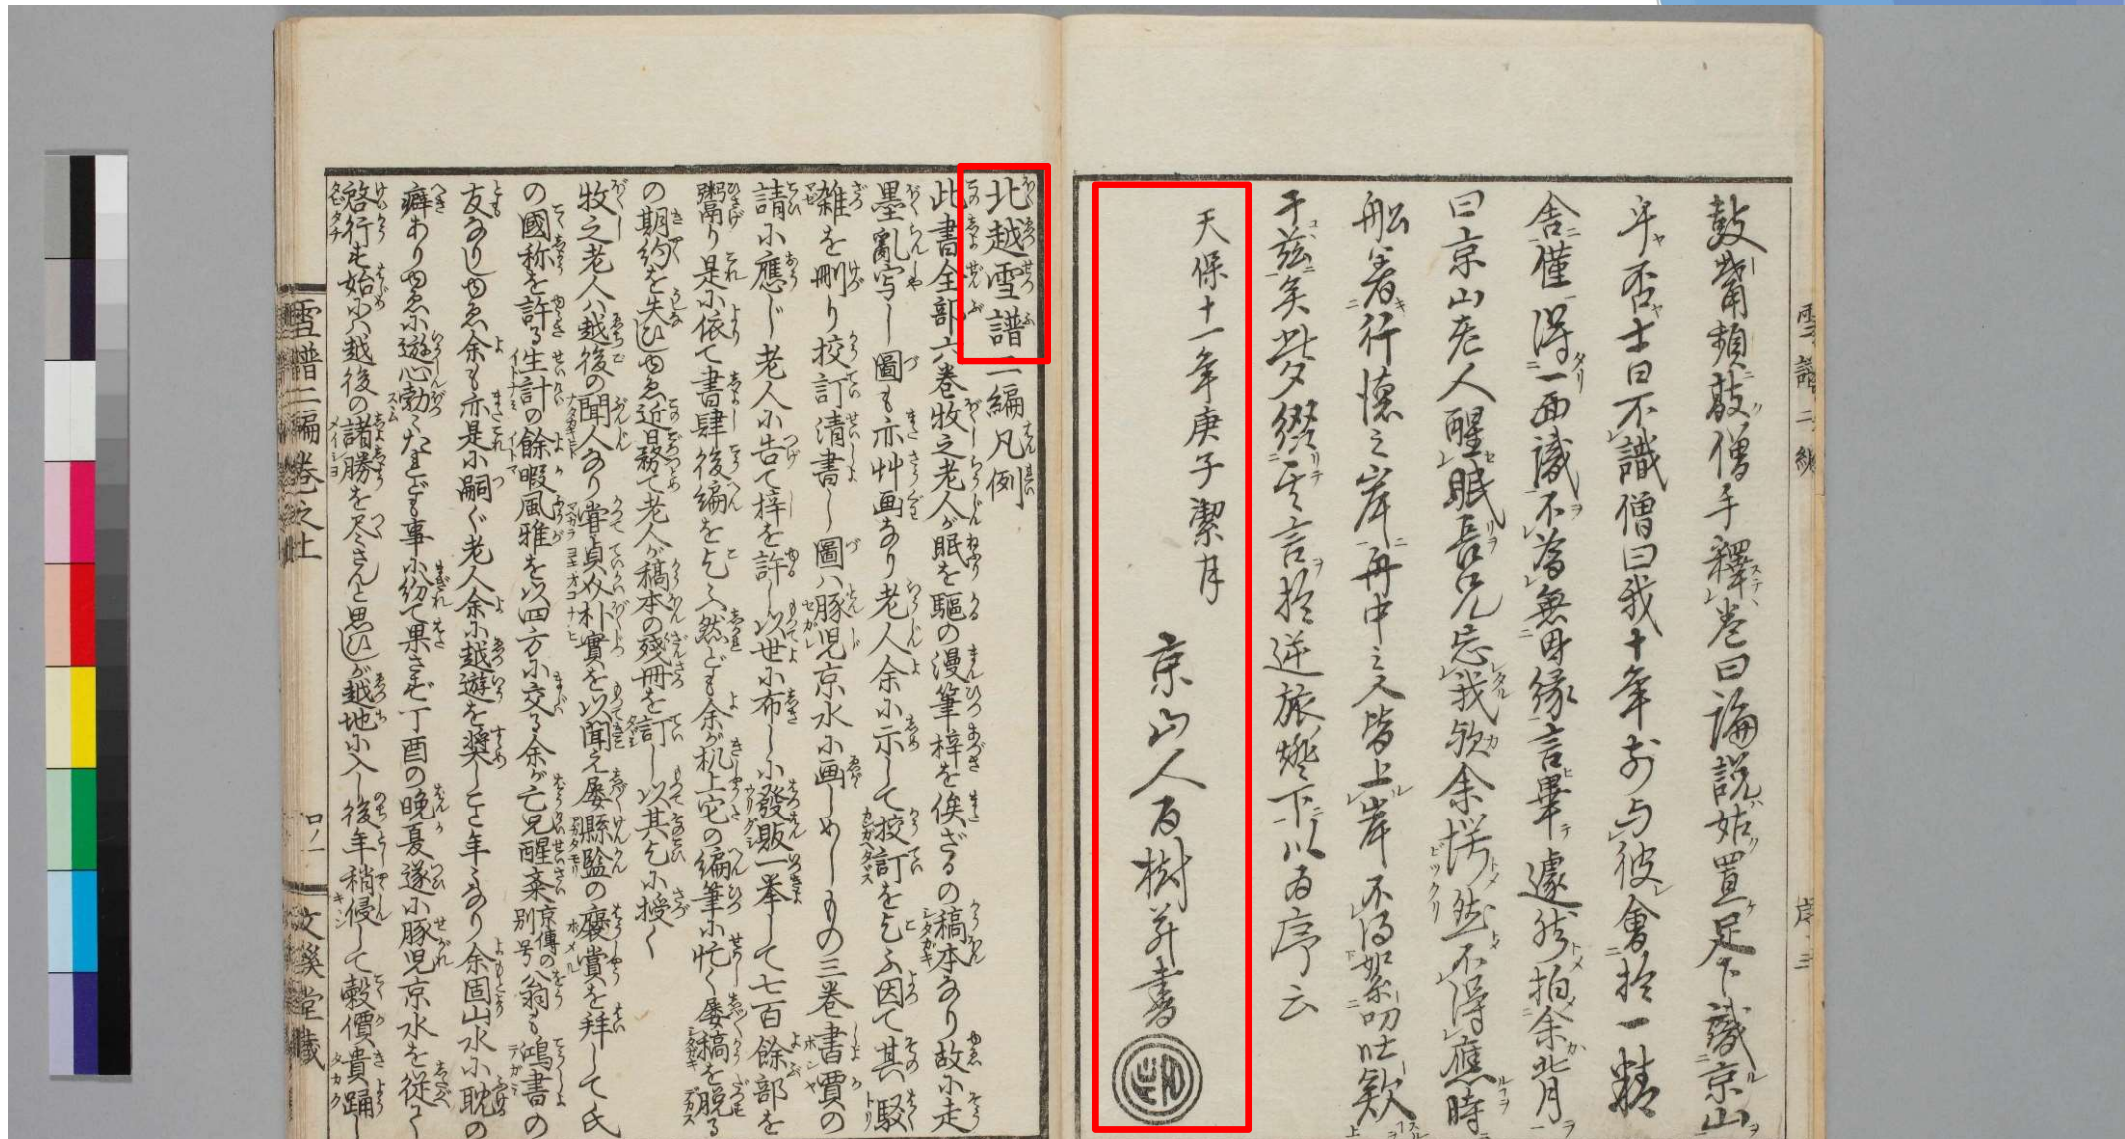 鼓掌頻敲僧手釋巻曰論説姑置足下識京山
乎否士曰不識僧曰我十年前与彼會於一精
舎僅得一面識不為無因縁言畢遽然拍余背
曰京山老人醒眠長兄忘我欤余愕然不得應時
船着行徳之岸舟中之人皆上岸不得
于茲矣此夕綴其言於逆旅燈下以為序云
天保十一年庚子潔月
京山人百樹并書
雪譜二編
序三
北越雪譜二編凡例
此書全部六巻牧之老人が眠を駆の漫筆梓を俟ざるの稿本なり故に走
墨乱写し図も亦艸画なり老人余に示して校訂を乞ふ因て其駁
雑を刪り校訂清書し図ハ豚児京水に画しめしもの三巻書賈の
請に應じ老人に告て梓を許し以世に布しに發販一挙して七百餘部を
鬻り是に依て書肆後編を乞ふ然ども余が机上它の編筆に忙く屡稿を脱る
の期約を失ひしゆゑ近日務て老人が稿本の残冊を訂し以其乞に授く
牧之老人ハ越後の聞人なり甞貞介朴實を以聞え屡縣監の褒賞を拝して氏
の國称を許る生計の餘暇風雅を以四方に交る余が亡兄醒斎京傳の別号翁も鴻書の
友なりしゆゑ余も亦是に嗣ぐ老人余に越遊を奨しこと年々なり余固山水に耽の
癖ありゆゑに遊心勃々たれども事に紛て果さず丁酉の晩夏遂に豚児京水を従て
啓行す始にハ越後の諸勝を尽さんと思ひしが越地に入し後年稍侵して穀價貴踊し
雪譜二編巻之上
口ノ一
文溪堂藏